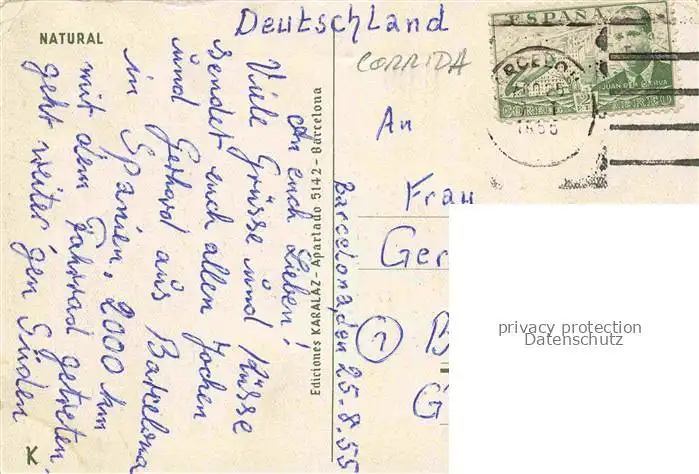 NATURAL
An euch Lieben!
Viele Grüsse und Küsse
sendet euch allen Jochen
und Gerhard aus Barcelona
in Spanien. 2000 km
mit dem Fahrrad getreten.
geht weiter gen Süden
K
Ediciones KARALAZ - Apartado 5142 - Barcelona
Barcelona, den 25-8.55
Deutschland
CORRIDA
ESPAÑA
JUAN DE LA CIERVA
CORREO AEREO
An
Frau
Ger
privacy protection
Datenschutz